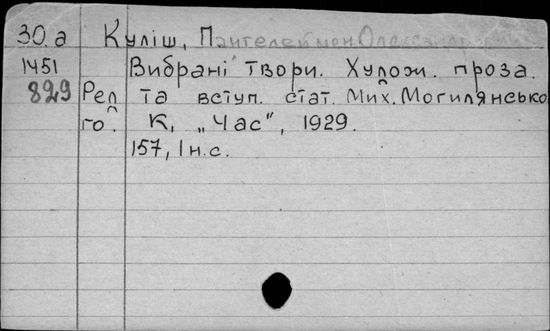 30.а Куліш, Пантелеймон Олександрович
1451 Вибрані твори. Худож. проза.
829 Ред. та вступ. стат. Мих. Могилянсько
го. К, „Час", 1929.
157, 1 н.с.